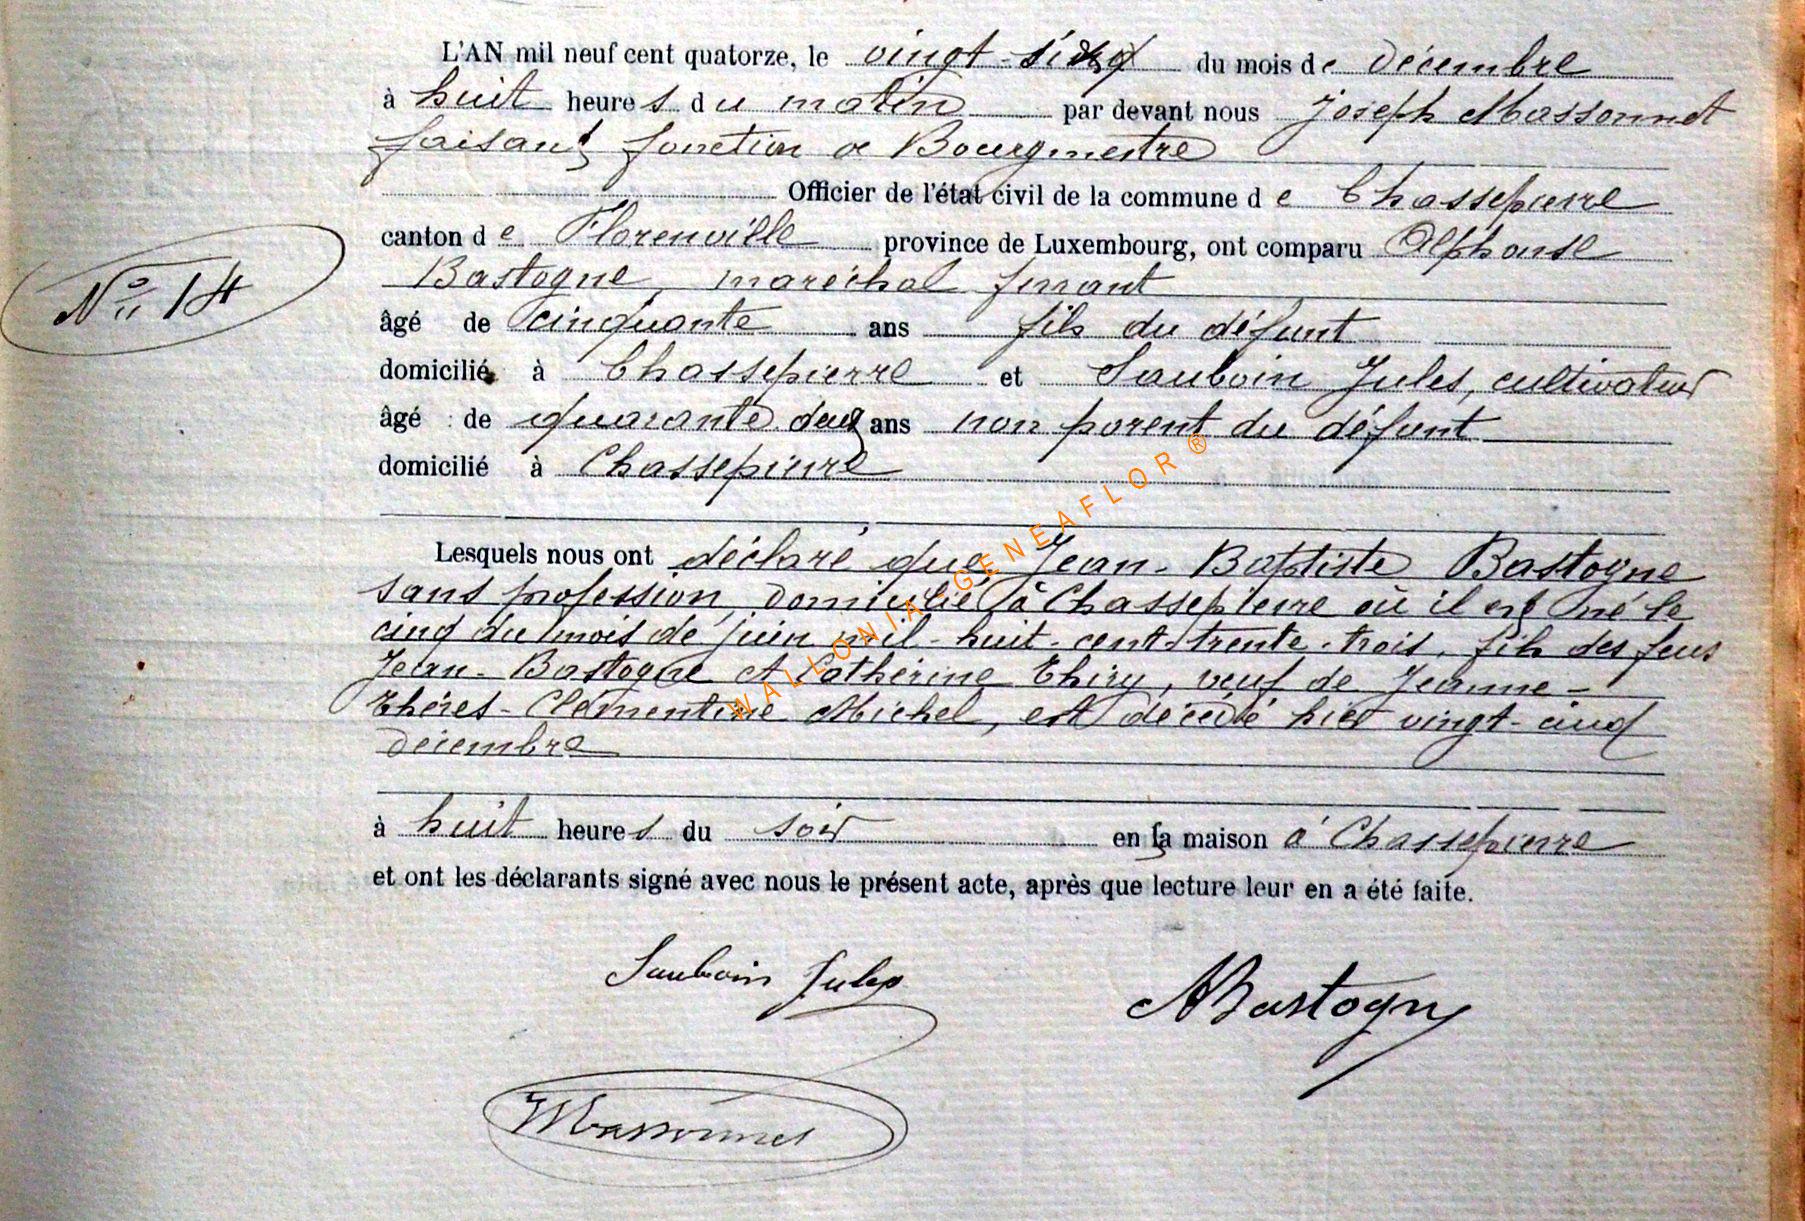 L'AN mil neuf cent quatorze, le vingt-six du mois de décembre
à huit heures du matin par devant nous Joseph Massonnet
faisant fonction de Bourgmestre
Officier de l'état civil de la commune de Chassepierre
canton de Florenville province de Luxembourg, ont comparu Alphonse
Bastogne, maréchal ferrant
âgé de cinquante ans fils du défunt
domicilié à Chassepierre et Sauboin Jules, cultivateur
âgé de quarante deux ans non parent du défunt
domicilié à Chassepierre
N° 14
Lesquels nous ont déclaré que Jean-Baptiste Bastogne
sans profession, domicilié à Chassepierre où il est né le
cinq du mois de juin mil-huit-cent-trente-trois, fils des feus
Jean-Bastogne et Cathérine Thiry, veuf de Jeanne-
Théres-Clémentine Michel, est décédé hier vingt-cinq
décembre
à huit heures du soir en sa maison à Chassepierre
et ont les déclarants signé avec nous le présent acte, après que lecture leur en a été faite.
Sauboin Jules
ABastogne
Massonnet
WALLONIA-GENEAFLOR®